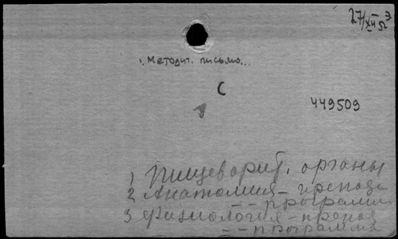 27/XII 52
1. Методит. письмо...
С
449509
1 Пищеварит. органы
2 Анатомия - препода
-- программа
3 Физиология - препод
-- программа